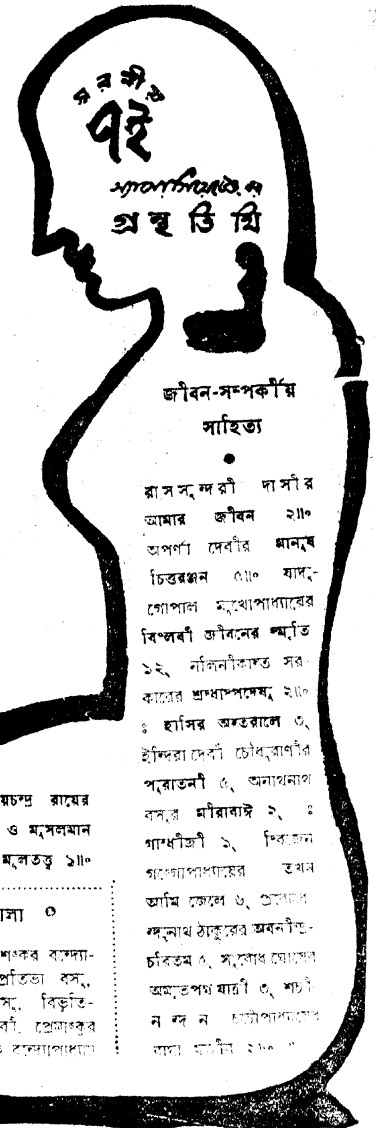 স্মরণীয়
৭ই
অ্যাসোসিয়েটেড-এর
গ্রন্থতিথি
জীবন-সম্পর্কীয়
সাহিত্য
রাসসুন্দরী দাসীর
আমার জীবন ২॥০
অপর্ণা দেবীর মানুষ
চিত্তরঞ্জন ৫॥০ যাদু-
গোপাল মুখোপাধ্যায়ের
বিপ্লবী জীবনের স্মৃতি
১২্ নলিনীকান্ত সর-
কারের শ্রদ্ধাস্পদেষু ২॥০
ঃ হাসির অন্তরালে ৩্
ইন্দিরা দেবী চৌধুরাণীর
পুরাতনী ৫্ অনাথনাথ
বসুর মীরাবাঈ ২্ ঃ
গান্ধীজী ১্ দ্বিজেন
গঙ্গোপাধ্যায়ের তখন
আমি জেলে ৬্
ন্দুনাথ ঠাকুরের অবনীন্দ্র-
চরিতম ৫্ সুবোধ ঘোষের
অমৃতপথ যাত্রী ৩্ শচী
নন্দন চট্টোপাধ্যায়ের
য়চন্দ্র রায়ের
ও মুসলমান
মূলতত্ত্ব ১॥০
শঙ্কর বন্দ্যো-
প্রতিভা বসু,
সু, বিভূতি-
র্বী, প্রেমাঙ্কুর
বন্দ্যোপাধ্যায়